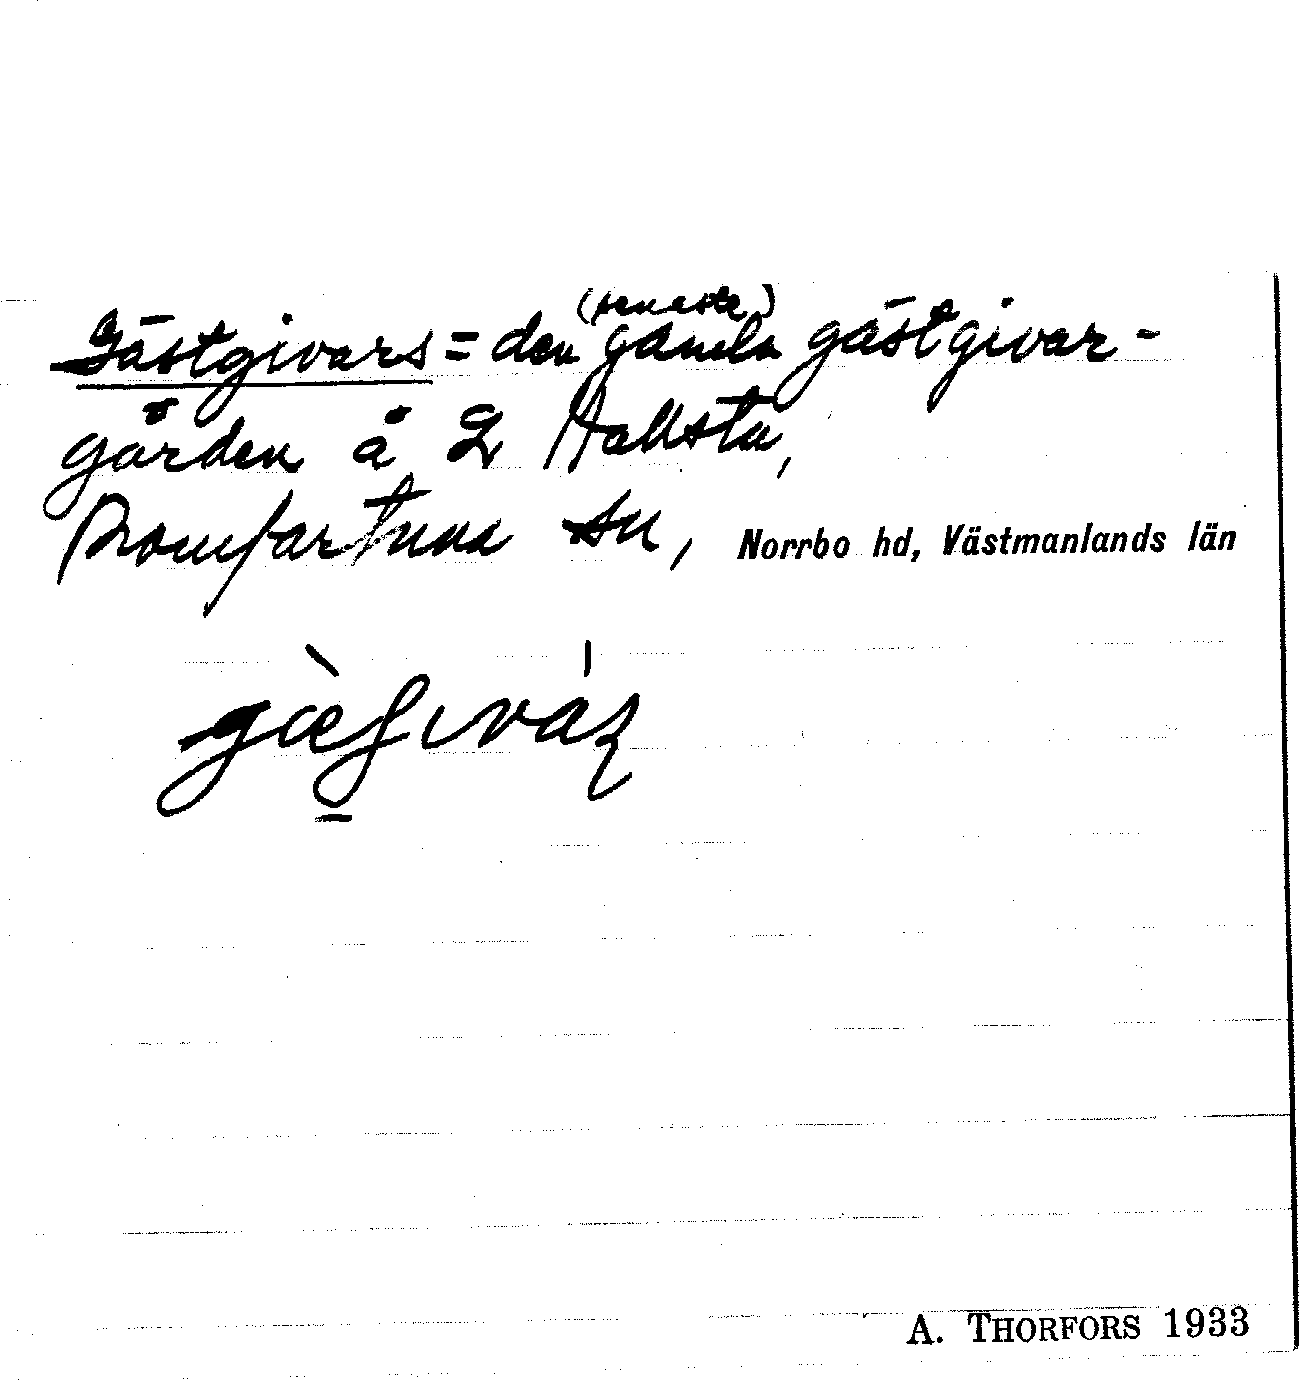 (senaste)
Gästgivars = den gamla gästgivar-
gården å 2 Hallsta,
Romfartuna sn, Norrbo hd, Västmanlands län
A. THORFORS 1933